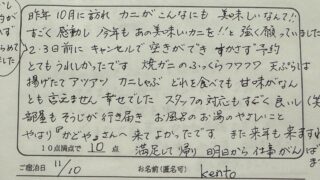 昨年10月に訪れ カニがこんなにも 美味しいなんて!!
すごく感動し 今年もあの美味しいカニを!! と強く願っていました
2・3日前に キャンセルで 空きができ すかさず予約
とてもうれしかったです 焼ガニの ふっくらフワフワ 天ぷらは
揚げたて アツアツ カニしゃぶ どれを食べても 甘味がなん
とも言えません 幸せでした スタッフの対応もすごく良いし(笑
部屋もそうじが行き届き お風呂のお湯のやさしいこと
やはり「かどや」さんへ 来てよかったです また来年も来ます
10点満点で 10 点 満足して帰り 明日から仕事がんば
ご宿泊日 11/10 お名前(匿名可) kento